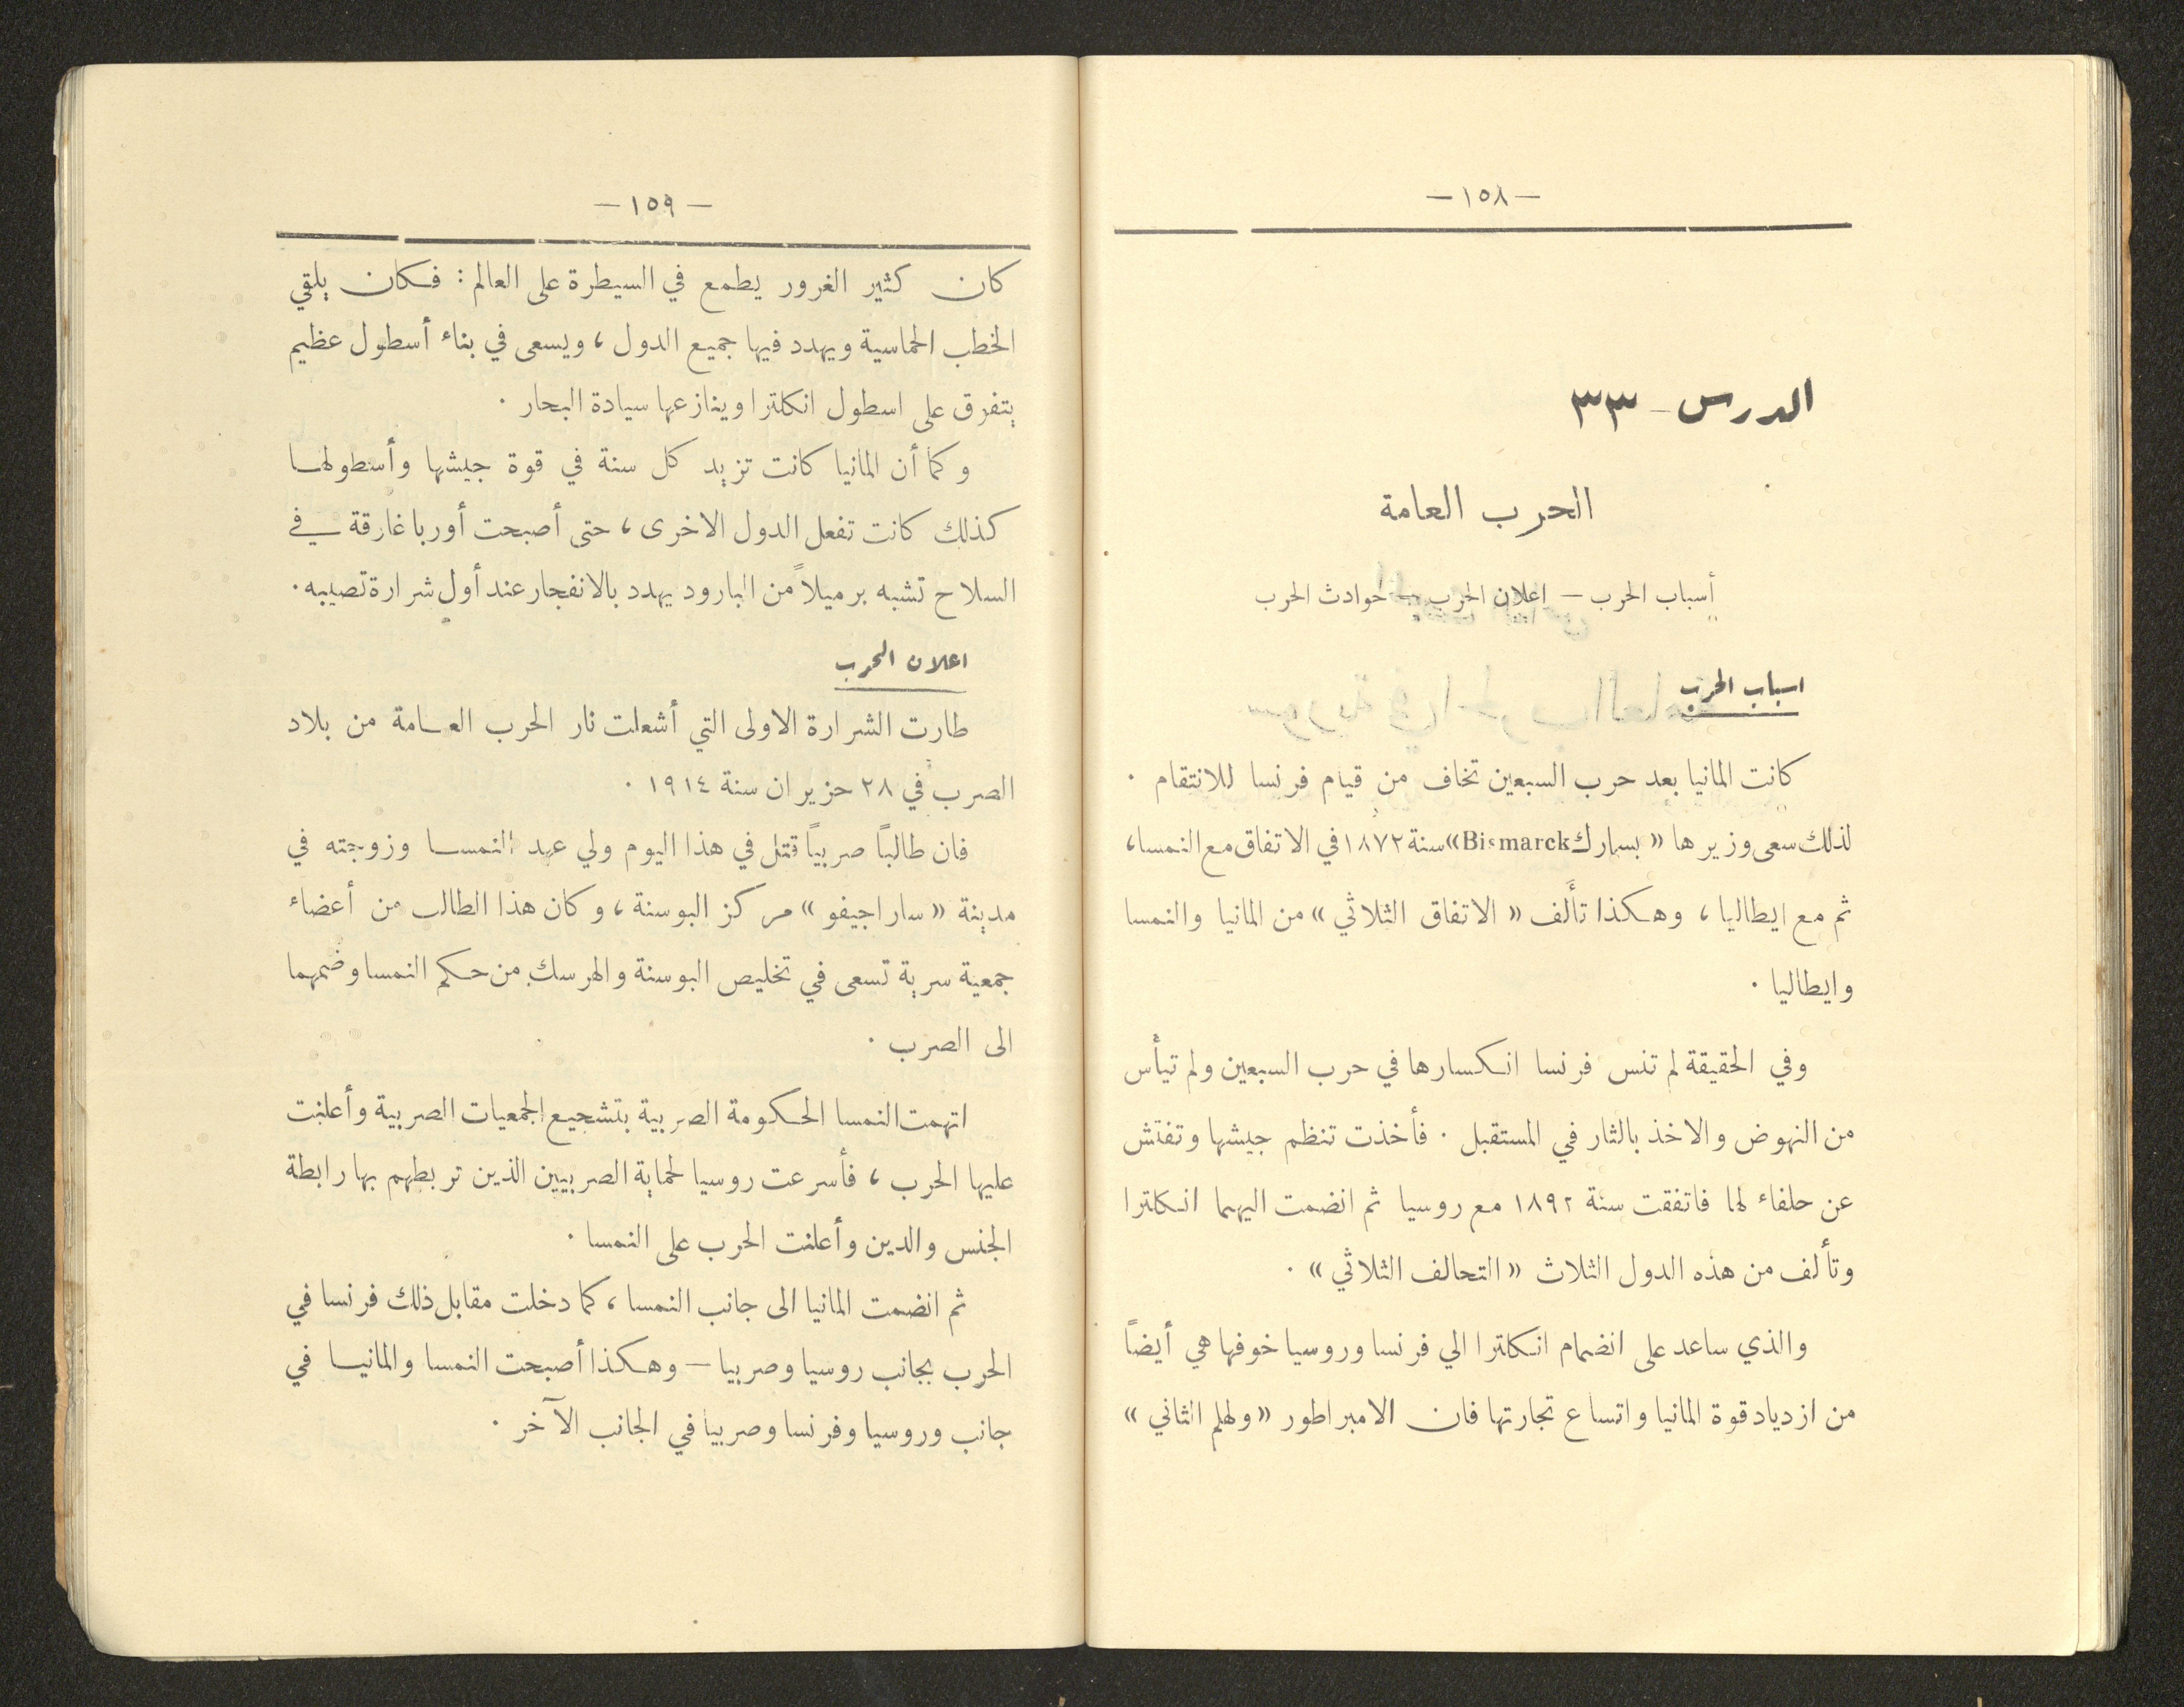 — ١٥٨ —
الدرس - ٣٣
الحرب العامة
أسباب الحرب — اعلان الحرب — حوادث الحرب
اسباب الحرب
كانت المانيا بعد حرب السبعين تخاف من قيام فرنسا للانتقام .
لذلك سعى وزيرها « بسمارك Bismarck» سنة ١٨٧٢ في الاتفاق مع النمسا،
ثم مع ايطاليا ، وهكذا تألف « الاتفاق الثلاثي » من المانيا والنمسا
وايطاليا .
وفي الحقيقة لم تنس فرنسا انكسارها في حرب السبعين ولم تيأس
من النهوض والاخذ بالثار في المستقبل . فأخذت تنظم جيشها وتفتش
عن حلفاء لها فاتفقت سنة ١٨٩٢ مع روسيا ثم انضمت اليهما انكلترا
وتألف من هذه الدول الثلاث « التحالف الثلاثي » .
والذي ساعد على انضمام انكلترا الي فرنسا وروسيا خوفها هي أيضاً
من ازدياد قوة المانيا واتساع تجارتها فان الامبراطور « ولهلم الثاني »
— ١٥٩ —
كان كثير الغرور يطمع في السيطرة على العالم : فكان يلقي
الخطب الحماسية ويهدد فيها جميع الدول ، ويسعى في بناء أسطول عظيم
يتفوق على اسطول انكلترا وينازعها سيادة البحار .
وكما أن المانيا كانت تزيد كل سنة في قوة جيشها وأسطولها
كذلك كانت تفعل الدول الاخرى ، حتى أصبحت أوربا غارقة في
السلاح تشبه برميلاً من البارود يهدد بالانفجار عند أول شرارة تصيبه .
اعلان الحرب
طارت الشرارة الاولى التي أشعلت نار الحرب العامة من بلاد
الصرب في ٢٨ حزيران سنة ١٩١٤ .
فان طالباً صربياً قتل في هذا اليوم ولي عهد النمسا وزوجته في
مدينة « ساراجيفو » مركز البوسنة ، وكان هذا الطالب من أعضاء
جمعية سرية تسعى في تخليص البوسنة والهرسك من حكم النمسا وضمهما
الى الصرب .
اتهمت النمسا الحكومة الصربية بتشجيع الجمعيات الصربية وأعلنت
عليها الحرب ، فأسرعت روسيا لحماية الصربيين الذين تربطهم بها رابطة
الجنس والدين وأعلنت الحرب على النمسا .
ثم انضمت المانيا الى جانب النمسا ، كما دخلت مقابل ذلك فرنسا في
الحرب بجانب روسيا وصربيا — وهكذا أصبحت النمسا والمانيا في
جانب وروسيا وفرنسا وصربيا في الجانب الآخر .